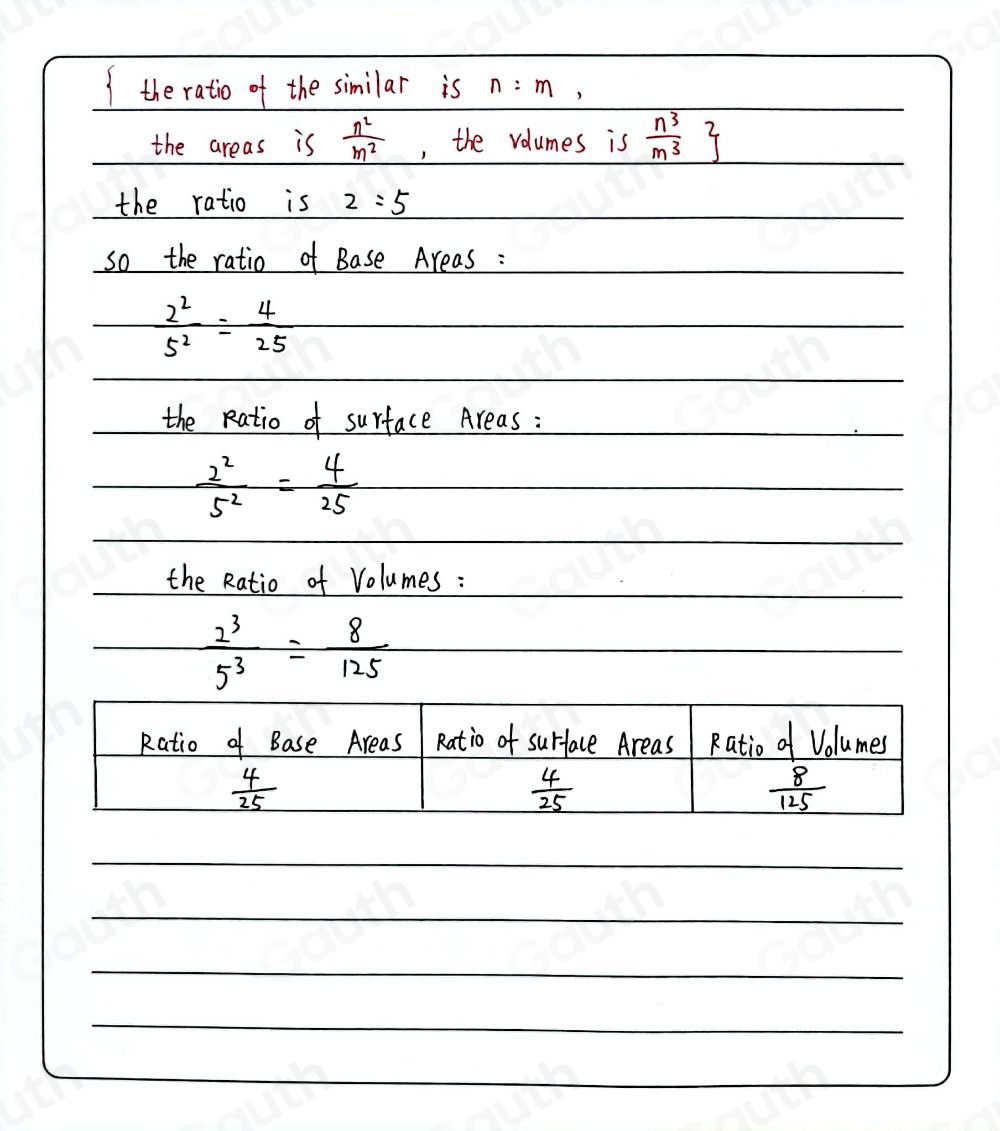 { the ratio of the similar is n : m ,
the areas is n²/m² , the volumes is n³/m³ }
the ratio is 2 : 5
so the ratio of Base Areas :
2²/5² = 4/25
the Ratio of surface Areas :
2²/5² = 4/25
the Ratio of Volumes :
2³/5³ = 8/125
Ratio of Base Areas Ratio of surface Areas Ratio of Volumes
4/25 4/25 8/125
Gauth